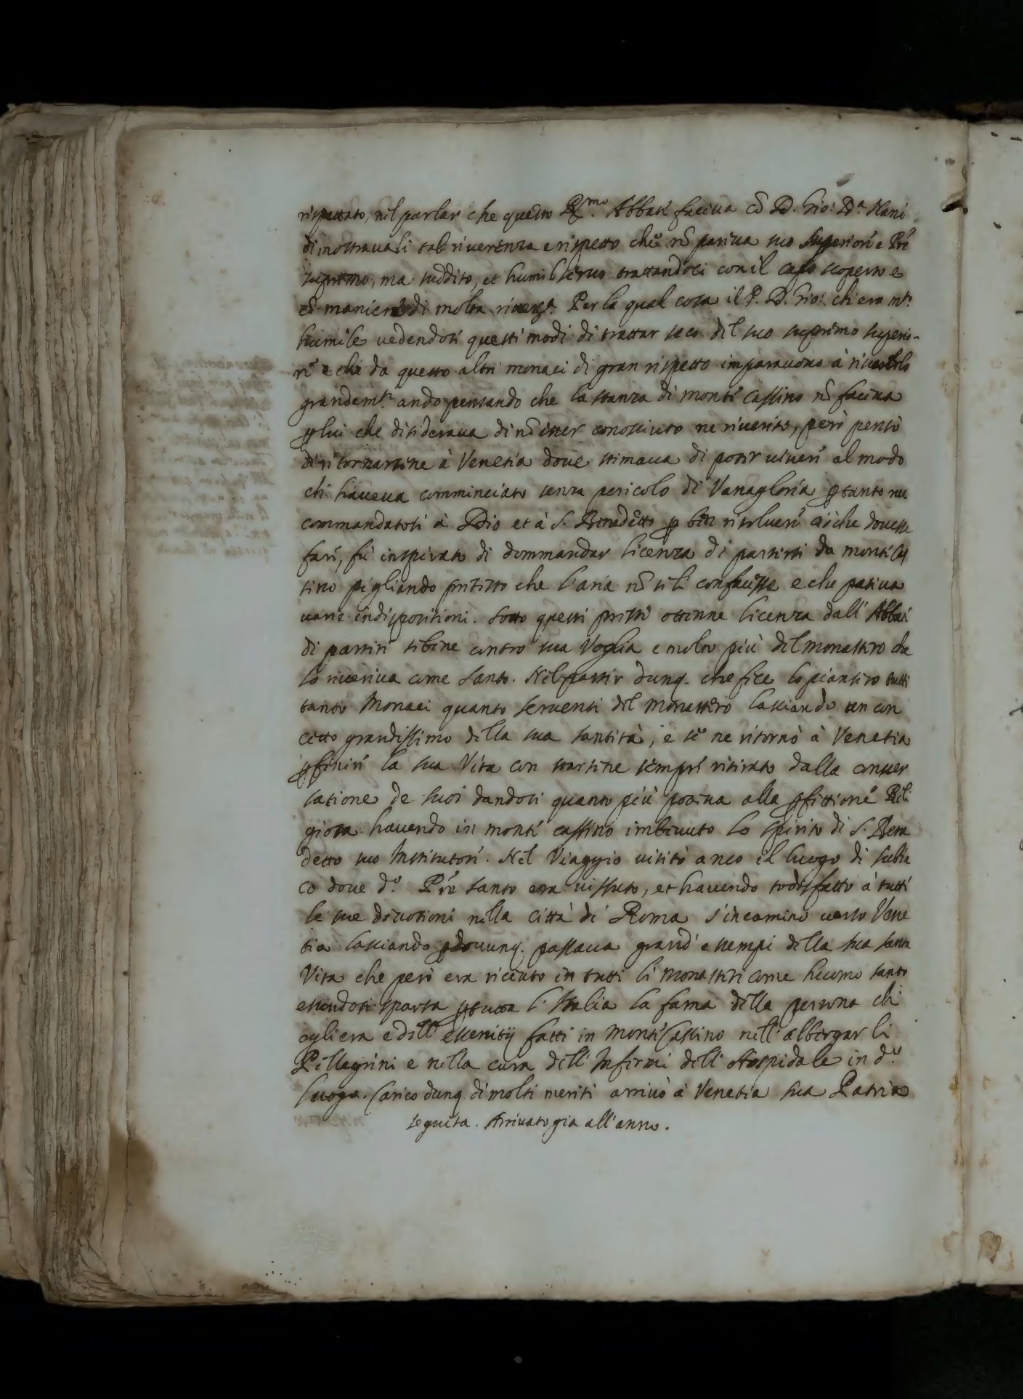 rispettato, nel parlar che questo R.mo Abbate faceva cō D. Gio: Dā
dimostravali tal riverenza e rispetto che nō pariva suo Superiore e Prē
supremo, ma suddito, et humil servo trattandoci con il capo scoperto e
cō maniere di molta riverza. Per la qual cosa il P. D. Gio: ch'era mto
humile vedendosi questi modi di trattar seco del suo supremo superio-
re e che da questo altri monaci di gran rispetto imparavono à riverirlo
grandemte andò pensando che la stanza di monte Cassino nō faceva
p lui che desiderava di nō esser conosciuto ne riverito, però pensò
di ritornarsene à Venetia dove stimava di poter vivere al modo
ch'haveva comminciato senza pericolo di Vanagloria p tanto
commandatosi à Dio et à S. Benedetto p ben risolvere ciò che dovesse
fare, fù inspirato di dommandar licenza di partirsi da monte Cas
sino pigliando pretesto che l'aria nō se li confacesse e che pativa
varie indispositioni. Sotto questi pretesti ottenne licenza dall' Abbate
di partire sibene contro sua Voglia e molto più del monastero che
lo riceriva come Santo. Nel partir dunq. che fece lo piansero tutti
tanto Monaci quanto serventi del monastero lasciando un con
cetto grandissimo della sua santità, e se ne ritornò à Venetia
p finire la sua Vita con starsene sempre ritirato dalla conver
satione de suoi dandosi quanto più poteva alla pfettione Reli
giosa havendo in monte cassino imbevuto lo spirito di S. Bene
detto suo Institutore. Nel Viaggio visitò anco il luogo di Subia
co dove do Prē santo era vissuto, et havendo sodisfatto à tutte
le sue devotioni nella città di Roma s'incaminò verso Vene
tia lasciando dovunq. passava grandi essempi della sua santa
Vita che però era riceuto in tutti li monasteri come huomo santo
essendosi sparsa p tutta l'Italia la fama della persona ch'
egli era e dell' essercitij fatti in Monte Cassino nell' albergar li
Pellegrini e nella cura dell' Infirmi dell' Hospidale in do
luogo. Carico dunq. di molti meriti arrivò à Venetia sua Patria
seguita. Arrivato gia all'anno.